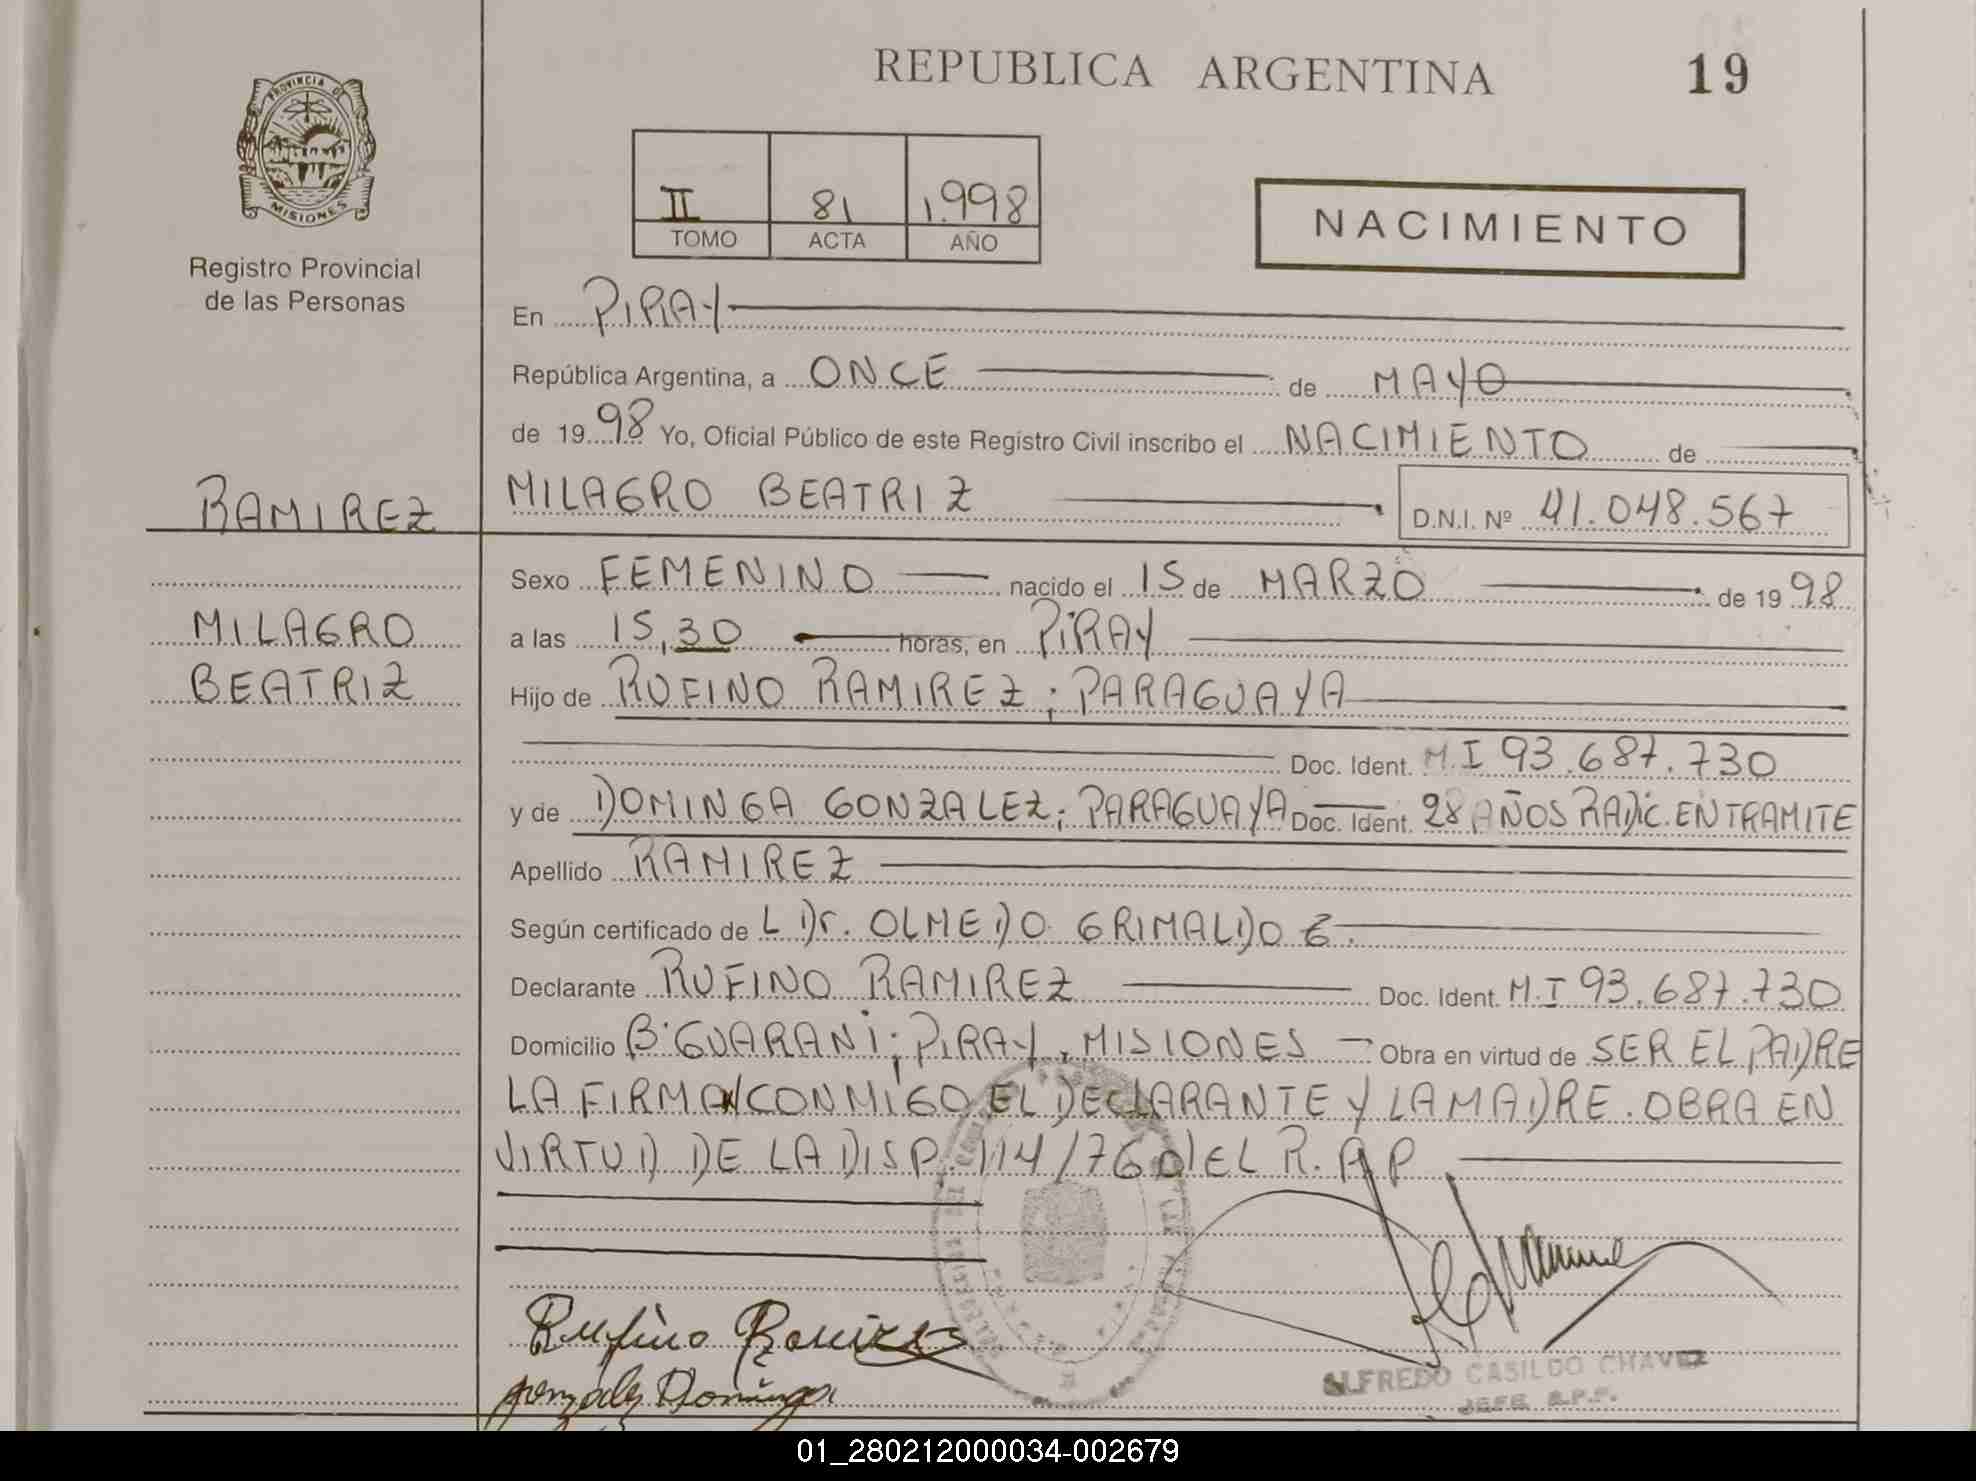 REPUBLICA ARGENTINA
19
PROVINCIA DE
MISIONES
Registro Provincial
de las Personas
II 81 1.998
TOMO ACTA AÑO
NACIMIENTO
En PIRAY
República Argentina, a ONCE de MAYO
de 1998 Yo, Oficial Público de este Registro Civil inscribo el NACIMIENTO de
RAMIREZ
MILAGRO BEATRIZ
D.N.I. Nº 41.048.567
MILAGRO
BEATRIZ
Sexo FEMENINO nacido el 15 de MARZO de 1998
a las 15,30 horas, en PIRAY
Hijo de RUFINO RAMIREZ; PARAGUAYA
Doc. Ident. M.I 93.687.730
y de DOMINGA GONZALEZ; PARAGUAYA Doc. Ident. 28 AÑOS RADIC. EN TRAMITE
Apellido RAMIREZ
Según certificado de L Dr. OLMEDO GRIMALDO E.
Declarante RUFINO RAMIREZ Doc. Ident. M.I 93.687.730
Domicilio Bº GUARANI; PIRAY, MISIONES Obra en virtud de SER EL PADRE
LA FIRMAN CONMIGO EL DECLARANTE Y LA MADRE. OBRA EN
VIRTUD DE LA DISP. 114/76 DEL R.P.P
Rufino Ramirez
gonzalez Dominga
ALFREDO CASILDO CHAVEZ
JEFE R.P.P.
01_280212000034-002679